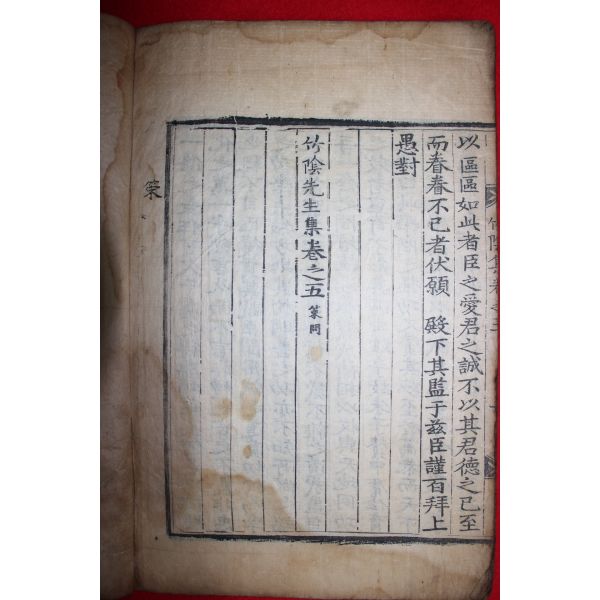 竹陰集卷之五
以區區如此者臣之愛君之誠不以其君德之已至
而眷眷不已者伏願 殿下其監于玆臣謹百拜上
愚對
竹陰先生集卷之五 策問
策